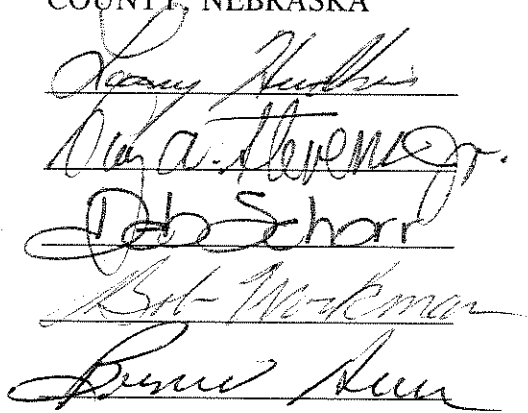 COUNTY, NEBRASKA
Larry Hudkins
Ray A. Stevens Jr.
Deb Schorr
Bob Workman
Bernie